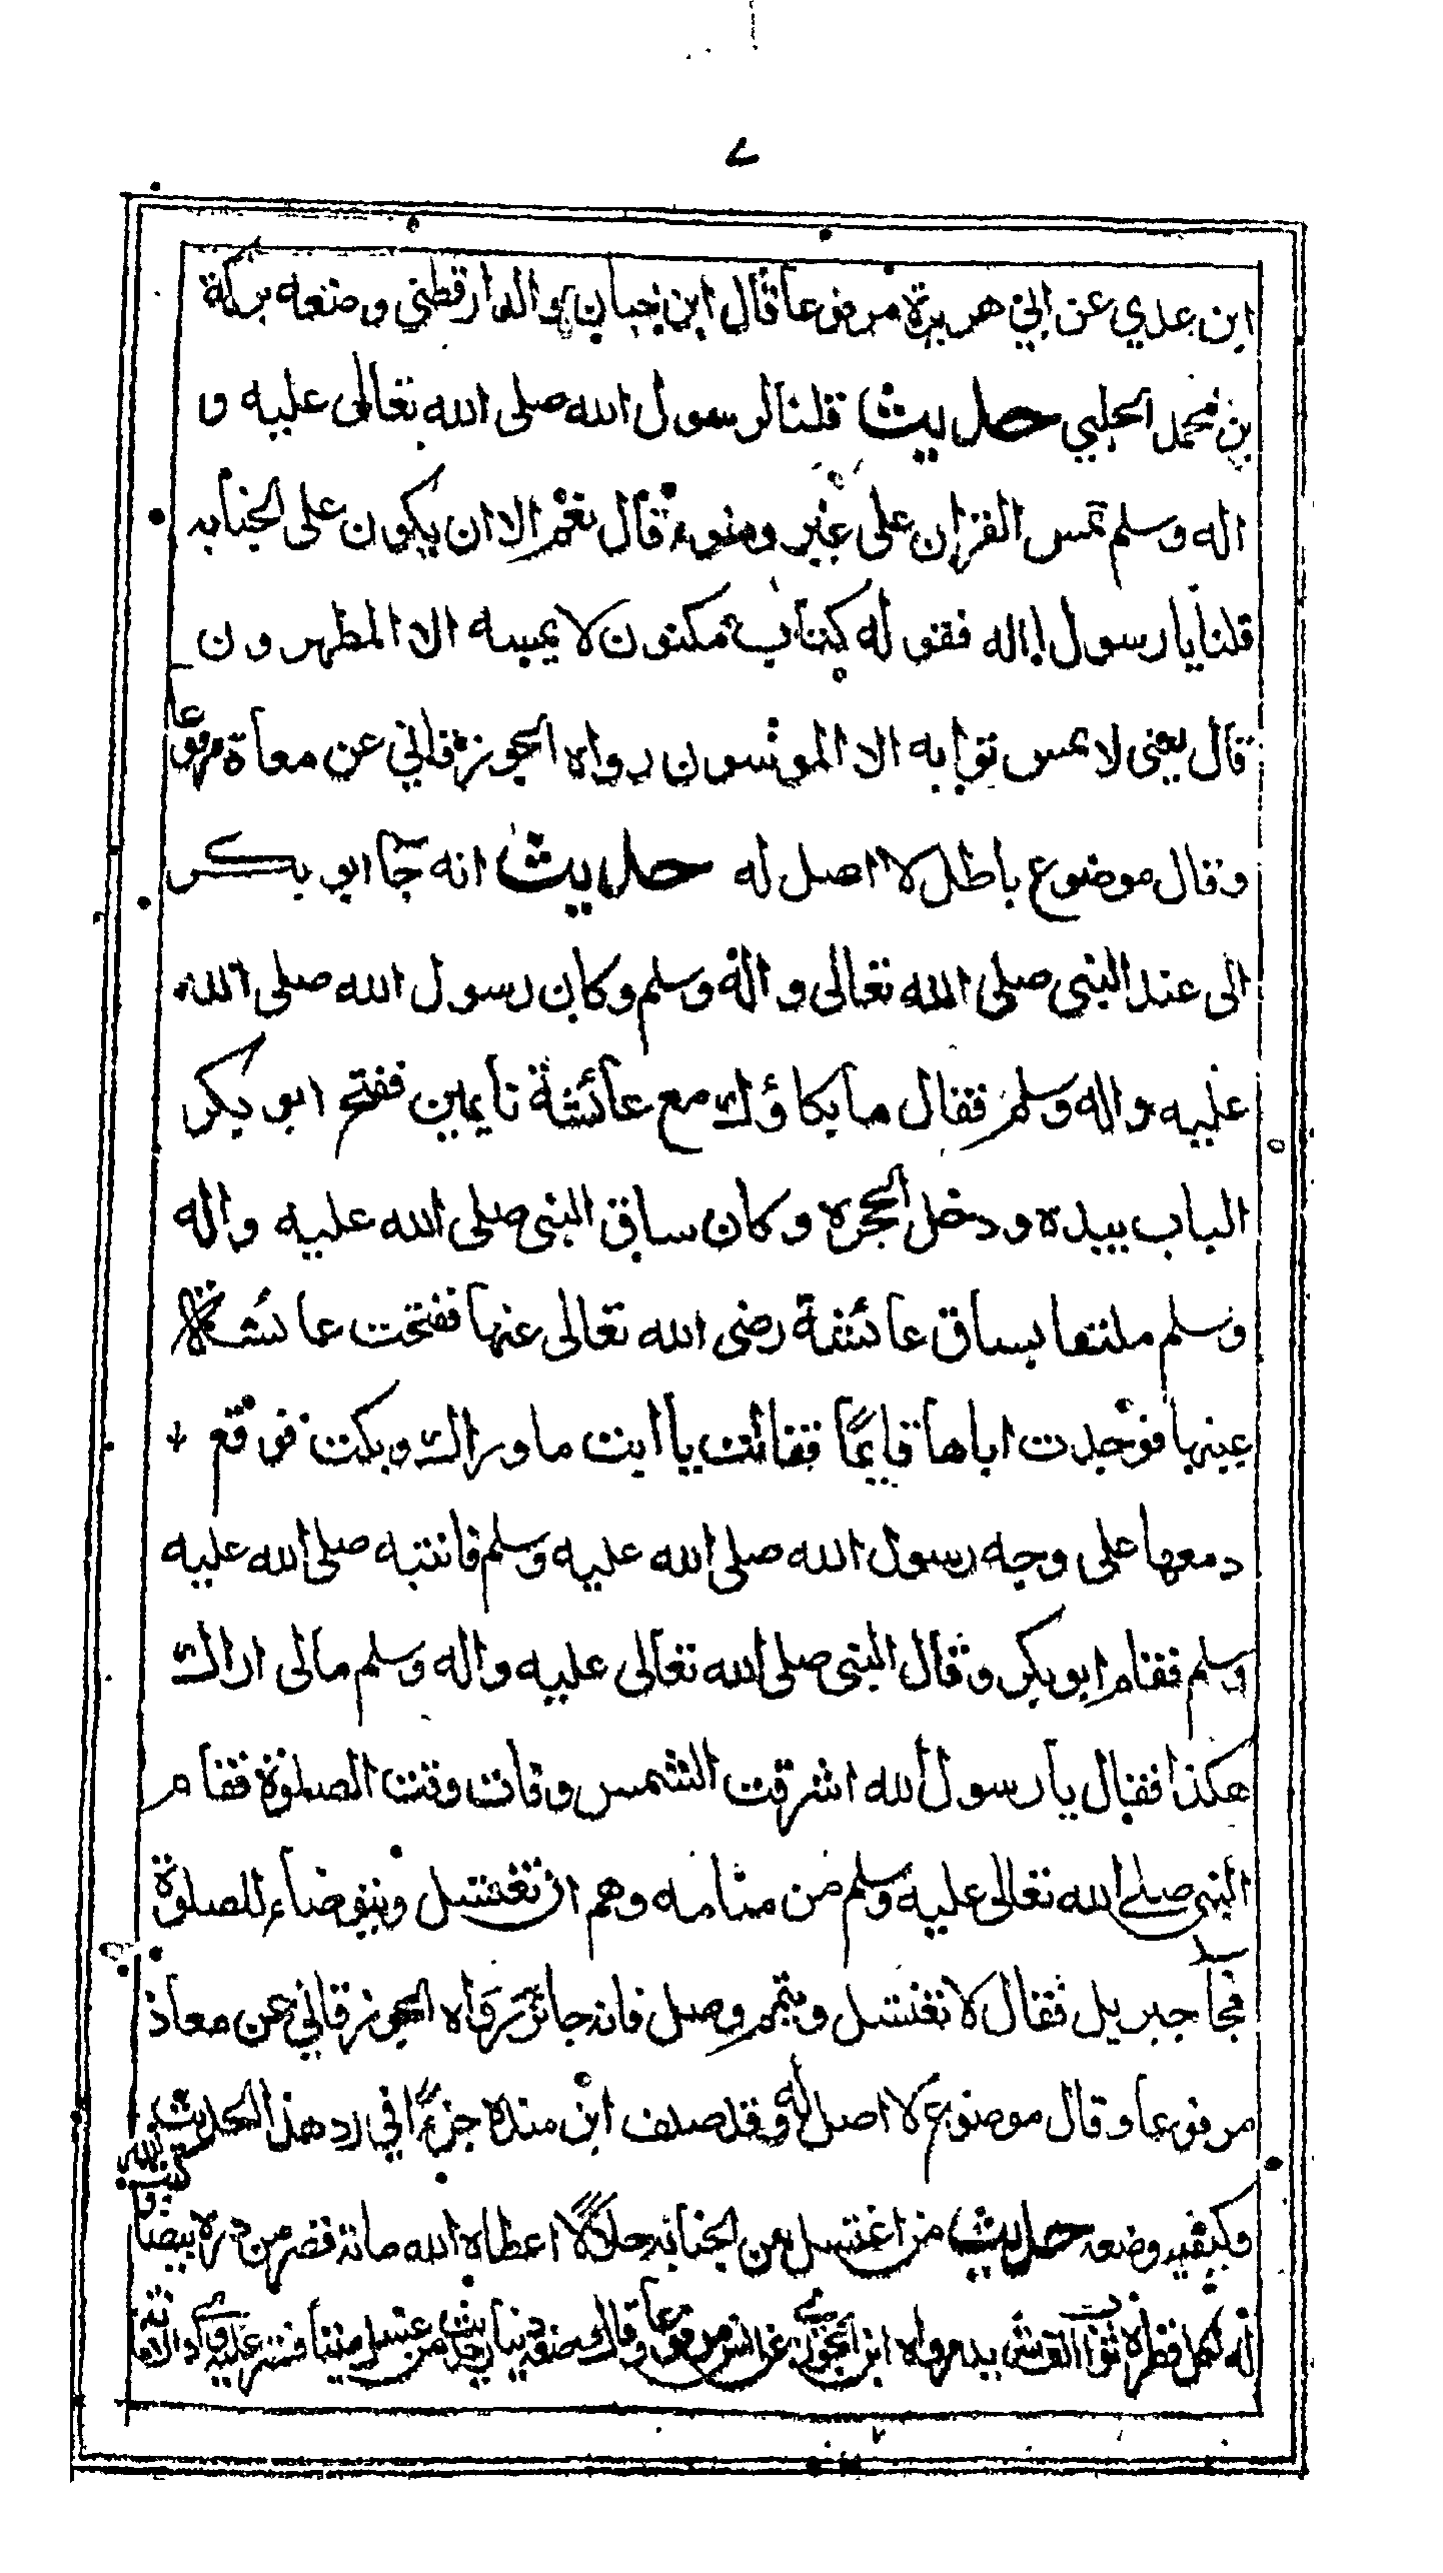 ابن عدي عن ابي هريرة مرفوعا قال ابن حبان والدارقطني وضعه بركة
بن محمد الحلبي حديث قلنا لرسول الله صلى الله تعالى عليه و
اله وسلم تمس القران على غير وضوء قال نعم الا ان يكون على الجنابه
قلنا يا رسول الله فقوله كتاب مكنون لا يمسه الا المطهرون
قال يعني لا يمس ثوابه الا المومنون رواه الجوزقاني عن معاذ مرفوعا
وقال موضوع باطل لا اصل له حديث انه جا ابو بكر
الى عند النبي صلى الله تعالى و اله وسلم وكان رسول الله صلى الله
عليه واله وسلم فقال ما بكاؤك مع عائشة نايمين ففتح ابو بكر
الباب بيده ودخل الحجره وكان ساق النبي صلى الله عليه واله
وسلم ملتفا بساق عائشة رضى الله تعالى عنها ففتحت عائشة
عينها فوجدت اباها قايمًا فقالت يا ابت ما وراك وبكت فوقع
دمعها على وجه رسول الله صلى الله عليه وسلم فانتبه صلى الله عليه
وسلم فقام ابو بكر وقال النبي صلى الله تعالى عليه واله وسلم مالى اراك
هكذا فقال يا رسول الله اشرقت الشمس وفات وقت الصلوة فقام
النبي صلى الله تعالى عليه وسلم من منامه وهم ان تغتسل ويتوضاء للصلوة
فجآ جبريل فقال لا تغتسل وتيمم وصل فانه جائز رواه الجوزقاني عن معاذ
مرفوعا وقال موضوع لا اصل له وقد صنف ابن منده جزءًا في رد هذا الحديث
وكيفيه وضعه حديث من اغتسل من الجنابه حلالا اعطاه الله مائة قصر من دره بيضا
له بكل قطرة ثواب الف شهيد رواه ابن الجوزي عن انس مرفوعا وقال وضعه دينار حديث من غسل ميتا فستر عليه